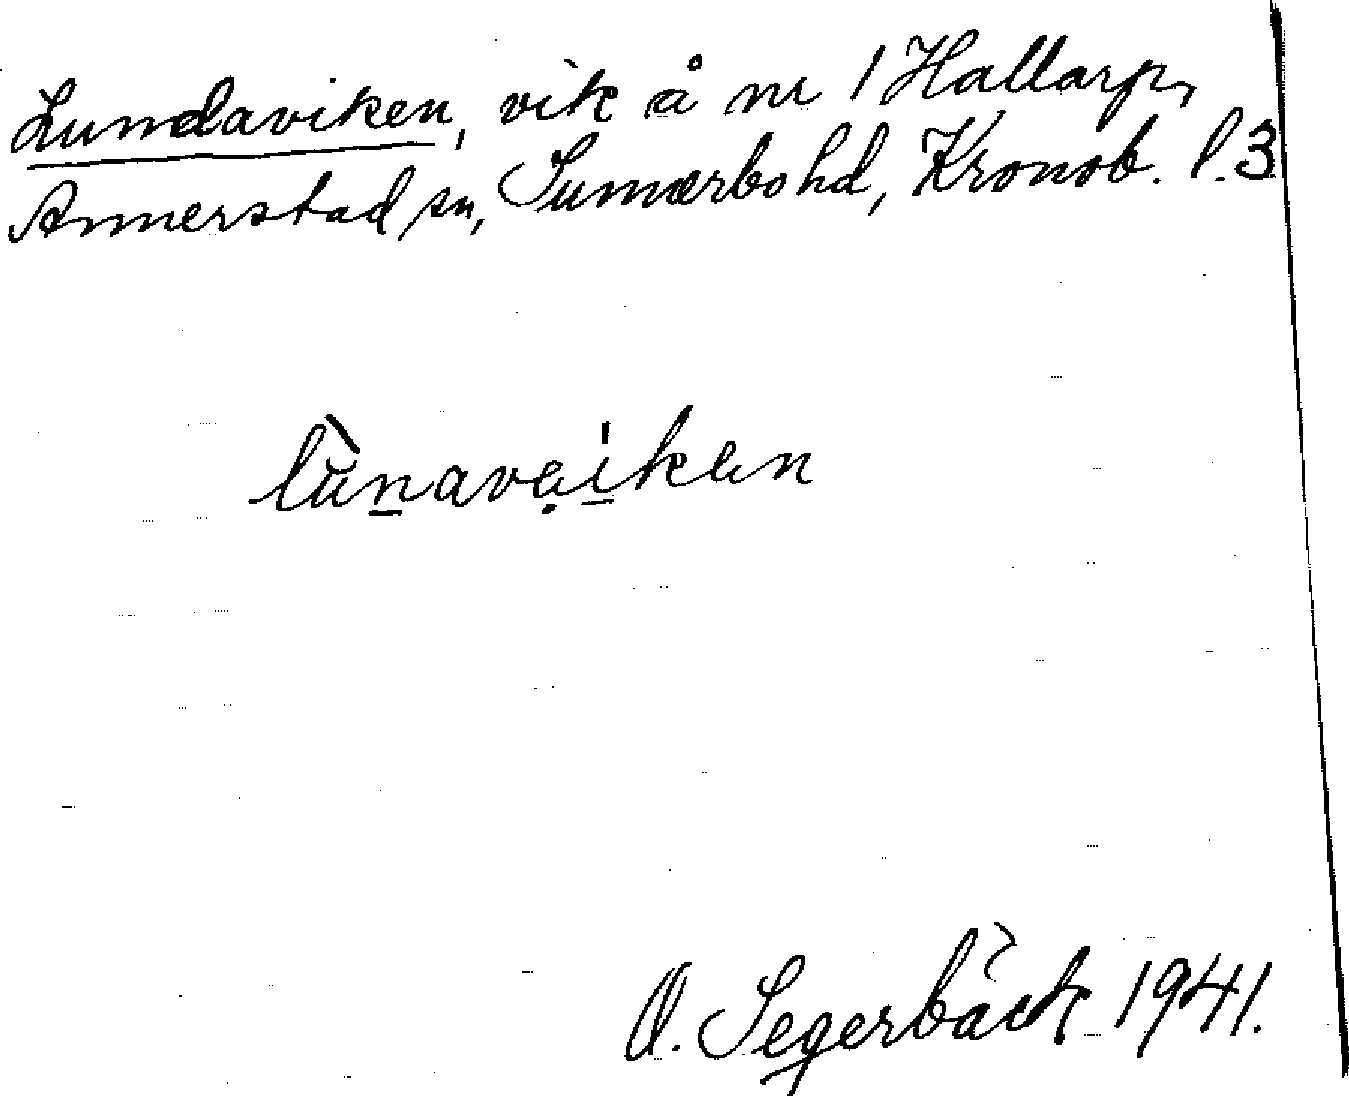 Lundaviken, vik å nr 1 Hallarp,
Annerstad sn, Sunnerbo hd, Kronob. l. 3
lùn̲avẹi̲ken
O. Segerbäck 1941.